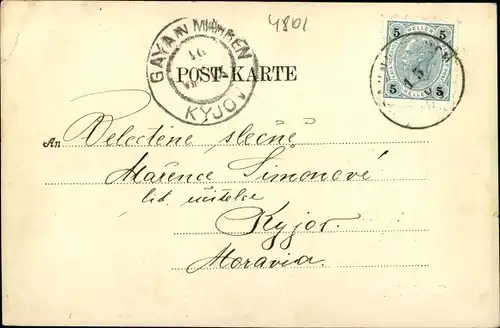 4801
GAYA IN MÄHREN
16
KYJOV
5 HELLER 5
5 5
13
POST-KARTE
An Velectěné slečně
Mařence Šimonové
lid. učitelce
Kyjov.
Moravia.